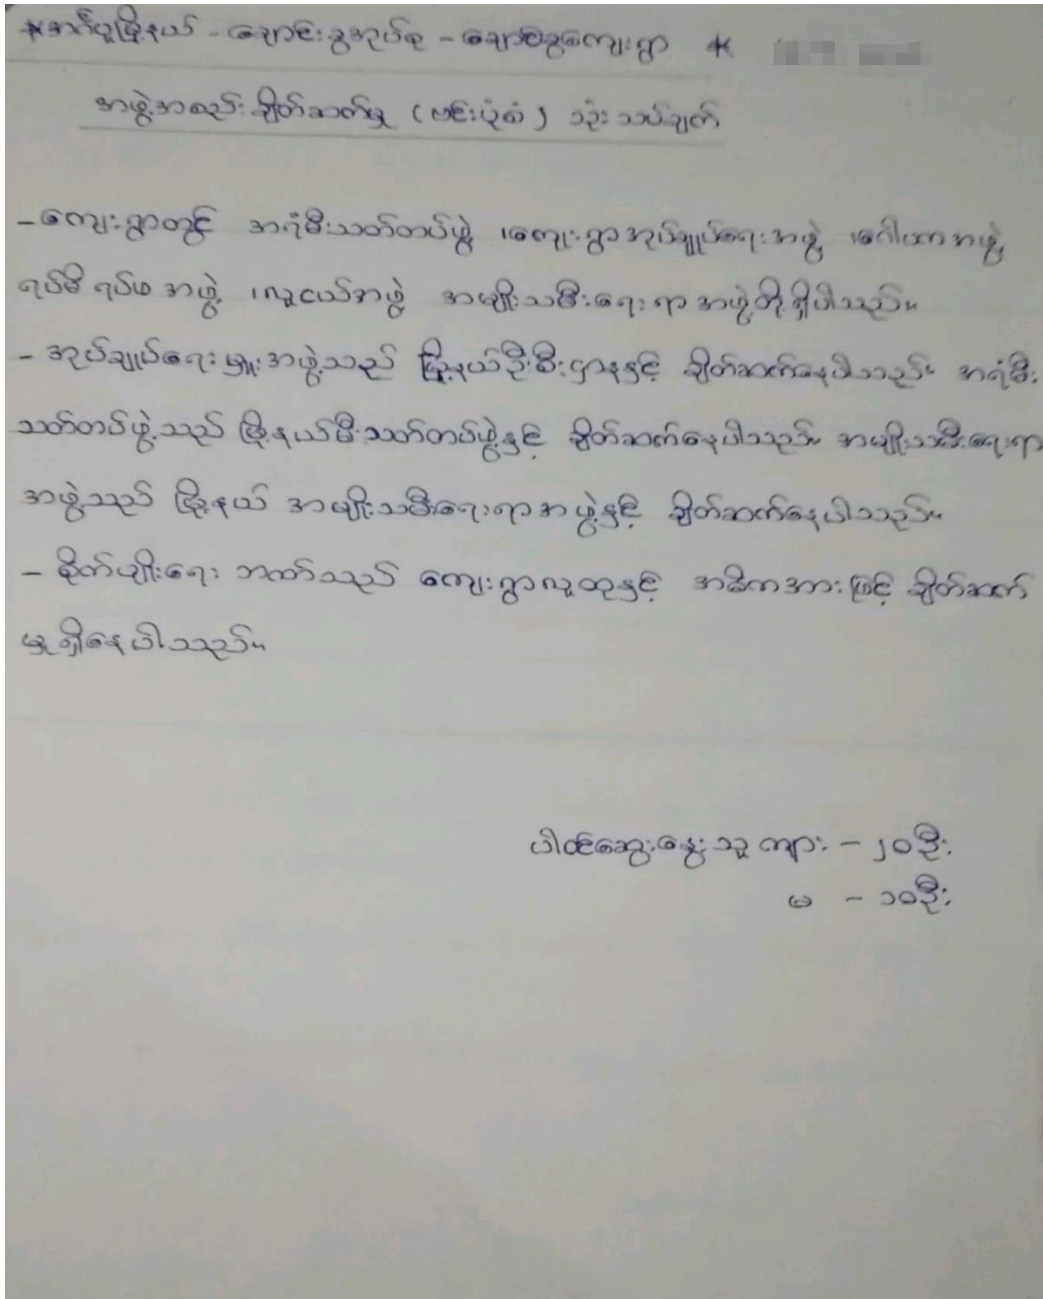 *အင်္ဂပူမြို့နယ် - ချောင်းခွအုပ်စု - ချောင်းခွကျေးရွာ *
အဖွဲ့အစည်းချိတ်ဆက်မှု (ဗင်းပုံစံ) သုံးသပ်ချက်
- ကျေးရွာတွင် အရံမီးသတ်တပ်ဖွဲ့ ၊ကျေးရွာအုပ်ချုပ်ရေးအဖွဲ့ ၊ဂေါပကအဖွဲ့
ရပ်မိရပ်ဖအဖွဲ့ ၊လူငယ်အဖွဲ့ အမျိုးသမီးရေးရာအဖွဲ့တို့ရှိပါသည်။
- အုပ်ချုပ်ရေးမှူးအဖွဲ့သည် မြို့နယ်ဦးစီးဌာနနှင့် ချိတ်ဆက်နေပါသည်။ အရံမီး
သတ်တပ်ဖွဲ့သည် မြို့နယ်မီးသတ်တပ်ဖွဲ့နှင့် ချိတ်ဆက်နေပါသည်။ အမျိုးသမီးရေးရာ
အဖွဲ့သည် မြို့နယ် အမျိုးသမီးရေးရာအဖွဲ့နှင့် ချိတ်ဆက်နေပါသည်။
- စိုက်ပျိုးရေး ဘဏ်သည် ကျေးရွာလူထုနှင့် အဓိကအားဖြင့် ချိတ်ဆက်
မှုရှိနေပါသည်။
ပါဝင်ဆွေးနွေးသူ ကျား - ၂၀ဦး
မ - ၁၀ဦး